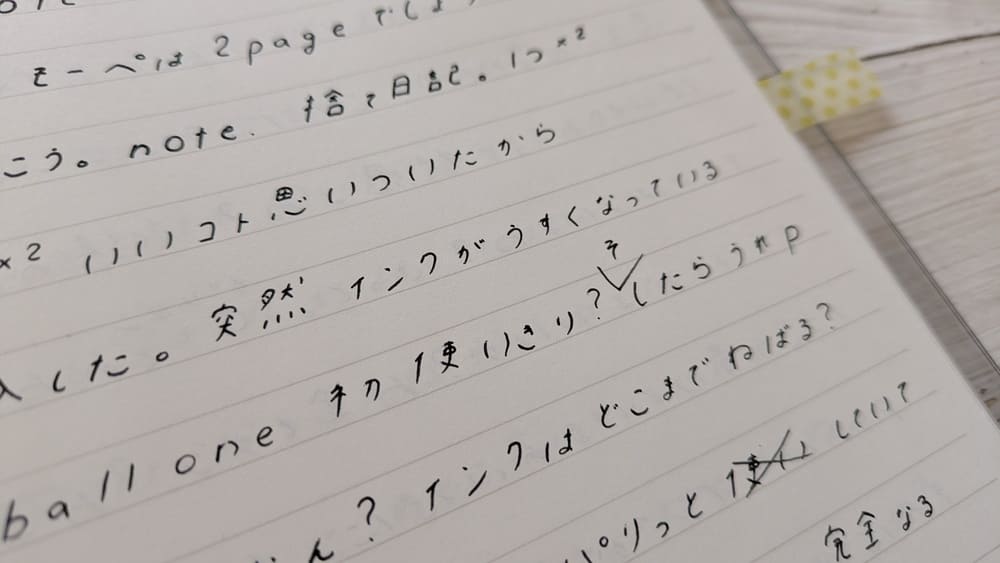 モーペは 2page でしよ
こう。note. 捨て日記。1つ×2
×2 いいコト思いついたから
入した。突然インクがうすくなっている
ball one 初使いきり?そしたらうれP
ん?インクはどこまでねばる?
りっと していて
完全なる